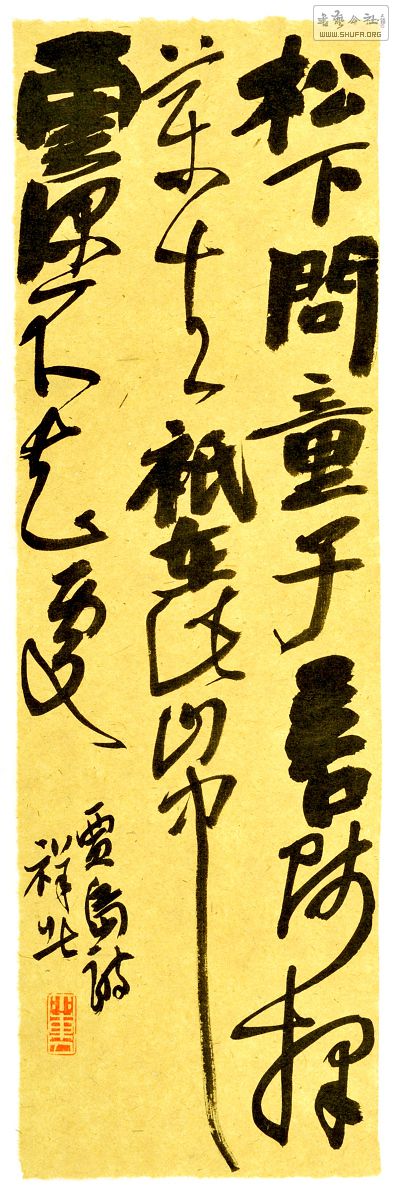 松下問童子言師採
藥去祇在此山中
雲深不知處
賈島詩
祥
書藝公社
WWW.SHUFA.ORG